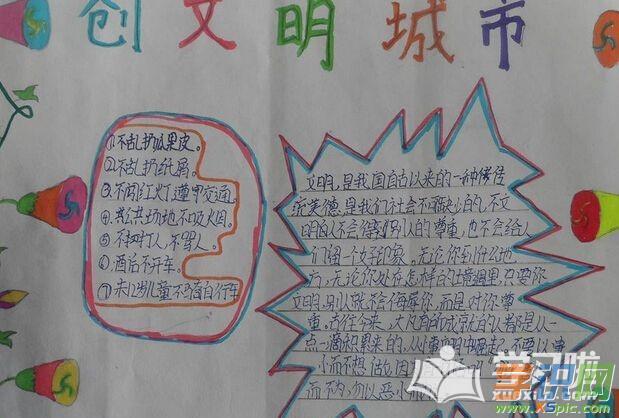 创文明城市
①不乱扔瓜果皮。
②不乱扔纸屑。
③不闯红灯,遵守交通。
④公共场地不吸烟。
⑤不打人,不骂人。
⑥酒后不开车。
⑦未12岁儿童不骑自行车
文明,是我国自古以来的一种传统
美德,是我们社会不可缺少的,不文
明的人不会得到别人的尊重,也不会给人
们留一个好印象。无论你到什么地
方,无论你处在怎样的环境里,只要你
文明,别人就不会侮辱你,而是对你尊
重,古往今来,大凡有成就的人都是从一
点一滴积累来的,从小事中崛起,不要以善
小而不
而为
学习啦
xuexila.com
学科网
www.xspic.com